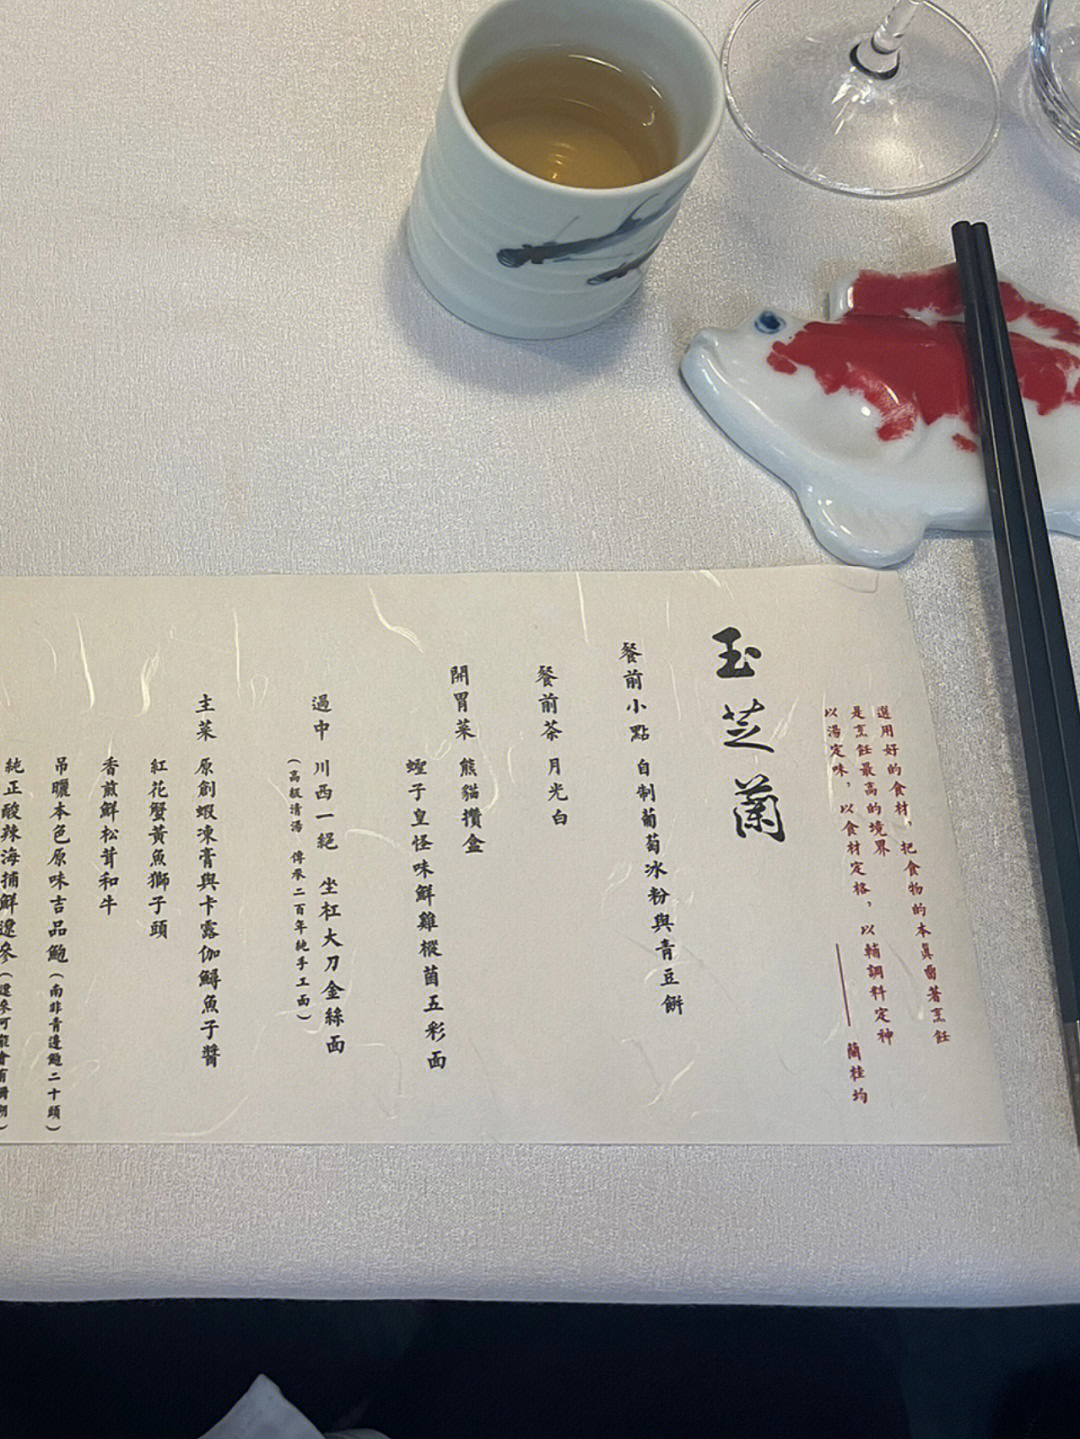 選用好的食材，把食物的本真看著烹飪
是烹飪最高的境界
以湯定味，以食材定格，以輔調料定神
—— 蘭桂均
玉芝蘭
餐前小點 自制葡萄冰粉與青豆餅
餐前茶 月光白
開胃菜 熊貓攢盒
蟶子皇怪味鮮雞樅菌五彩面
過中 川西一絕 坐杠大刀金絲面
(高級清湯 傳承二百年純手工面)
主菜 原創蝦凍膏與卡露伽鱘魚子醬
紅花蟹黃魚獅子頭
香煎鮮松茸和牛
吊曬本色原味吉品鮑(南非青邊鮑二十頭)
純正酸辣海捕鮮遼參